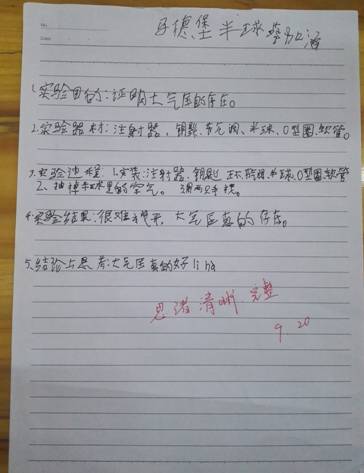 马德堡半球
1.实验目的:证明大气压的存在。
2.实验器材:注射器,钥匙,节孔阀,半球,O型圈,软管。
3.实验过程:1、安装:注射器、钥匙 半球、O型圈、软管
2、抽掉半球里的空气。
4.实验结果:很难 大气压真的存在。
5.结论与思考:大气压真的好li hai
思绪清晰 完整
9 20